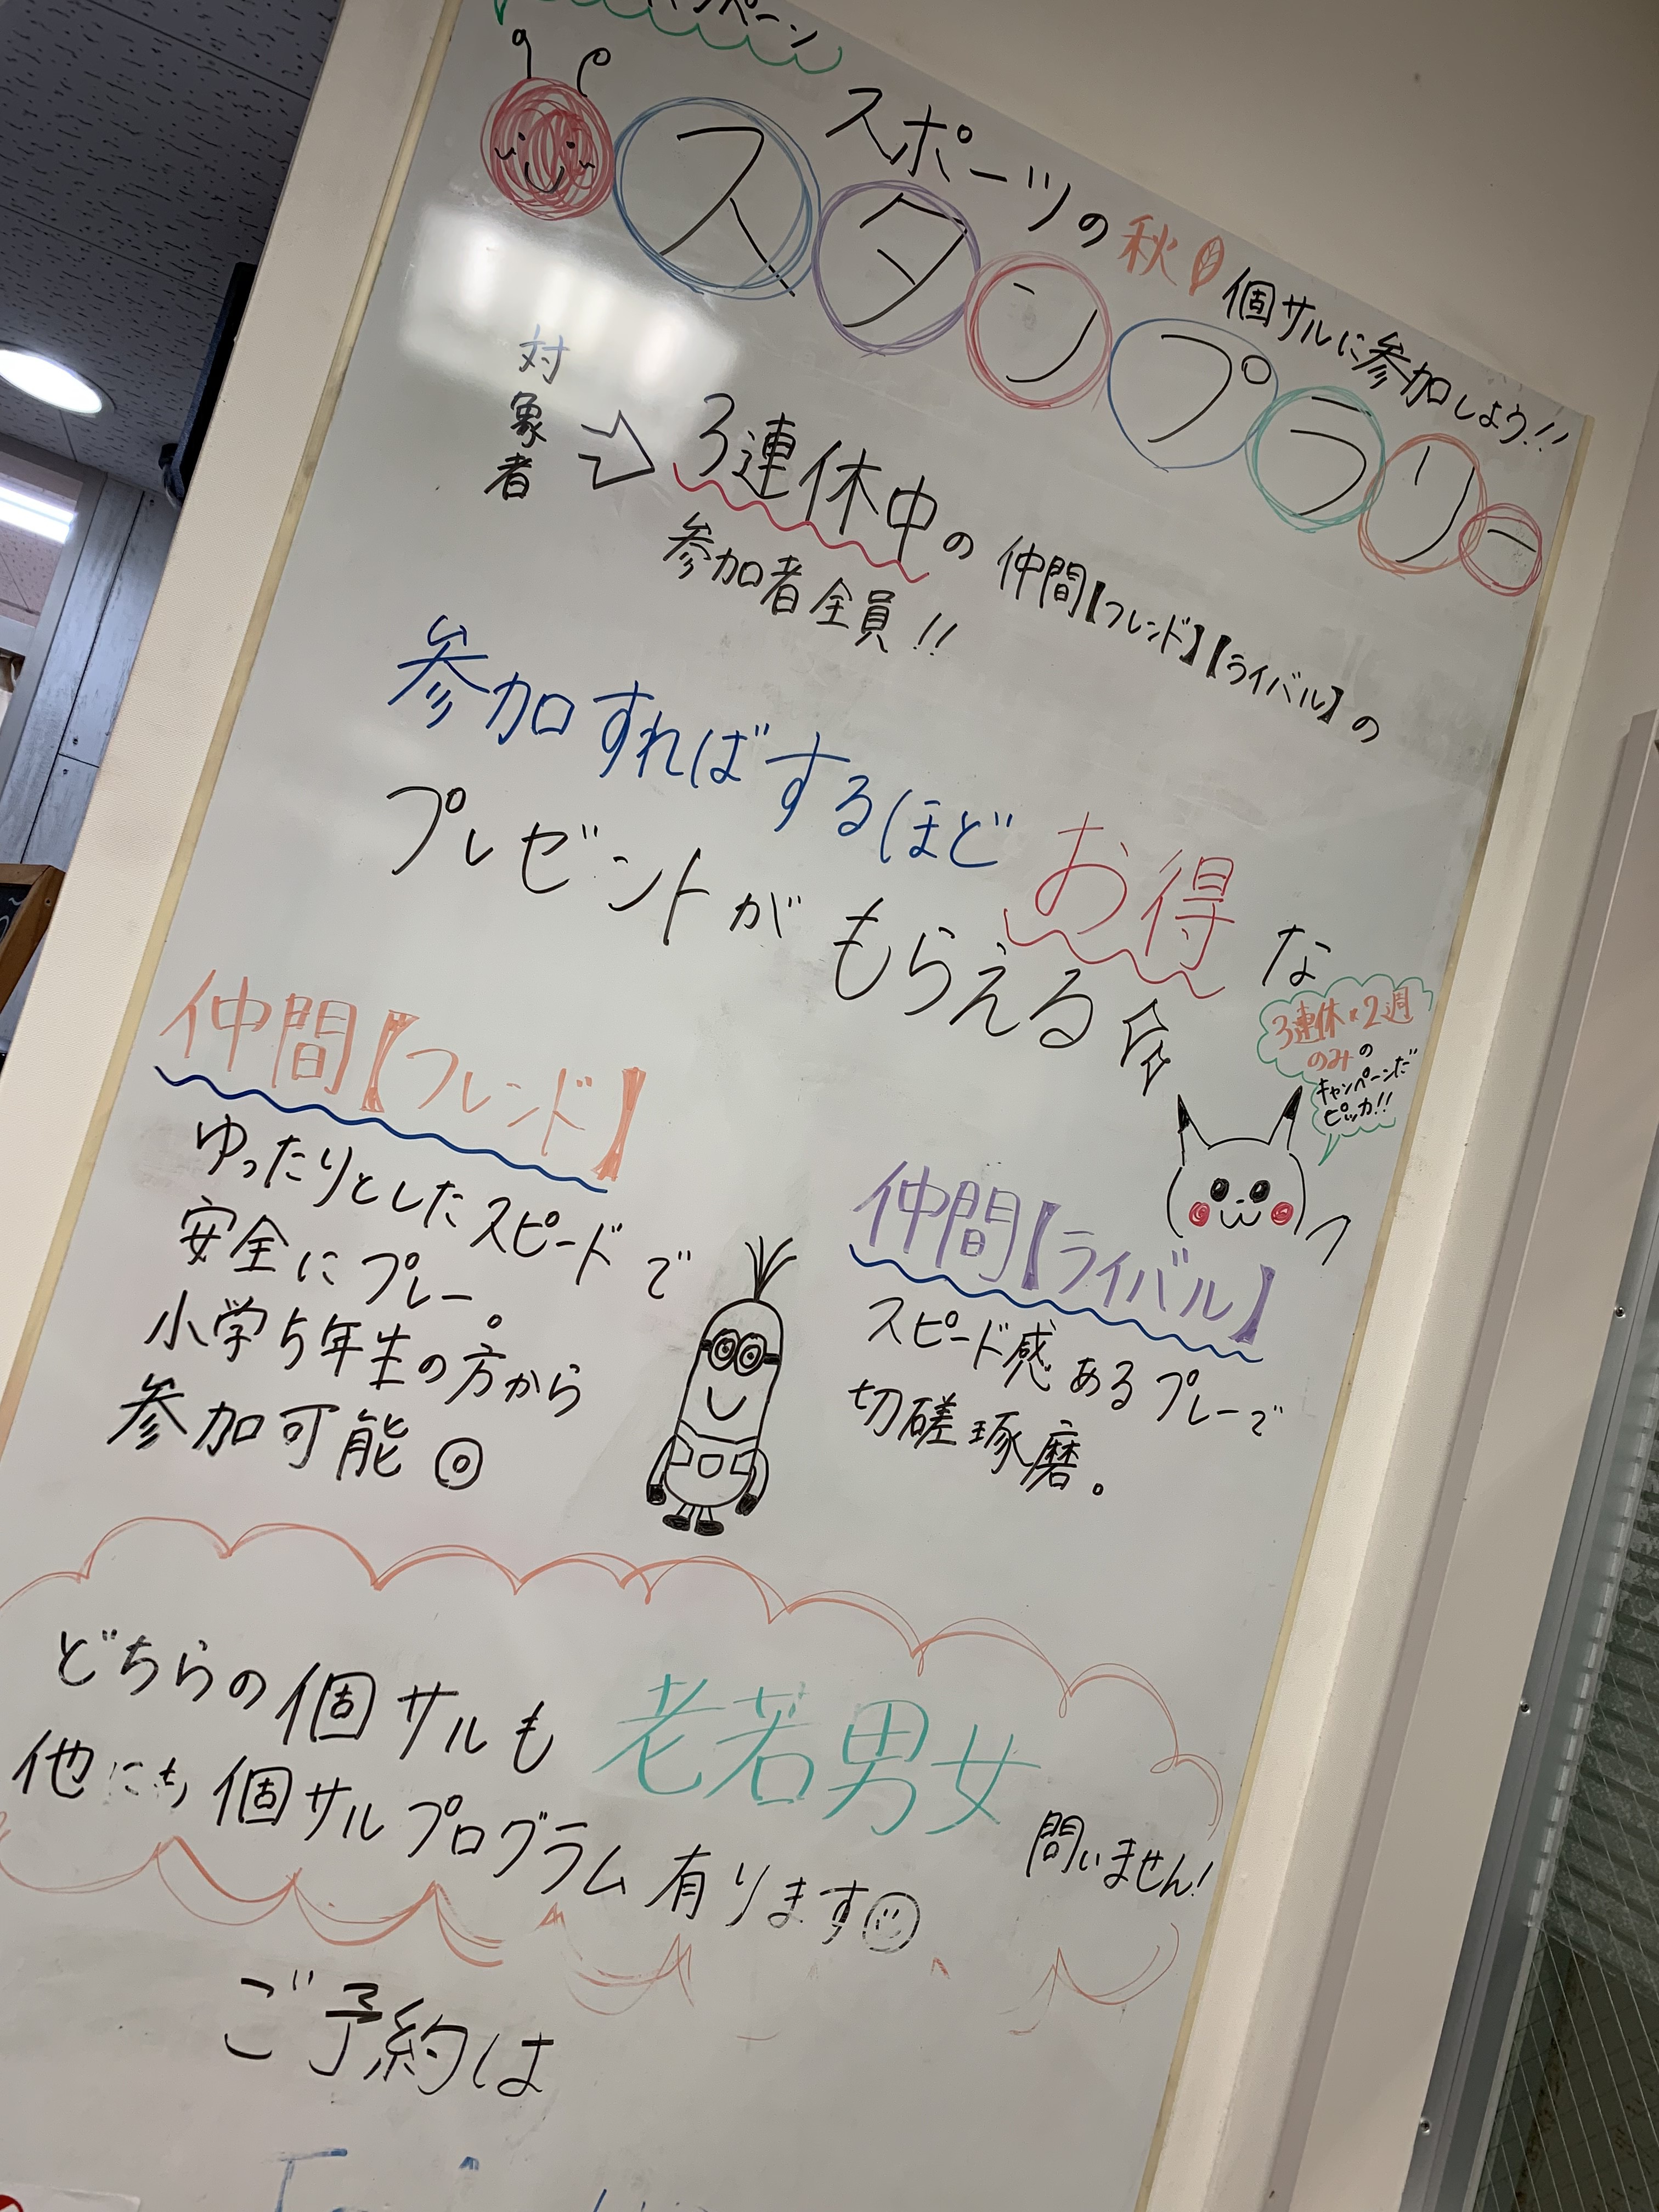 スポーツの秋 個サルに参加しよう!!
スタンプラリー
対象者
3連休中の仲間【フレンド】【ライバル】の
参加者全員!!
参加すればするほどお得な
プレゼントがもらえる
3連休×2週
のみの
キャンペーンだ
ピッカ!!
仲間【フレンド】
ゆったりとしたスピードで
安全にプレー。
小学5年生の方から
参加可能◎
仲間【ライバル】
スピード感あるプレーで
切磋琢磨。
どちらの個サルも老若男女問いません!
他にも個サルプログラム有ります
ご予約は